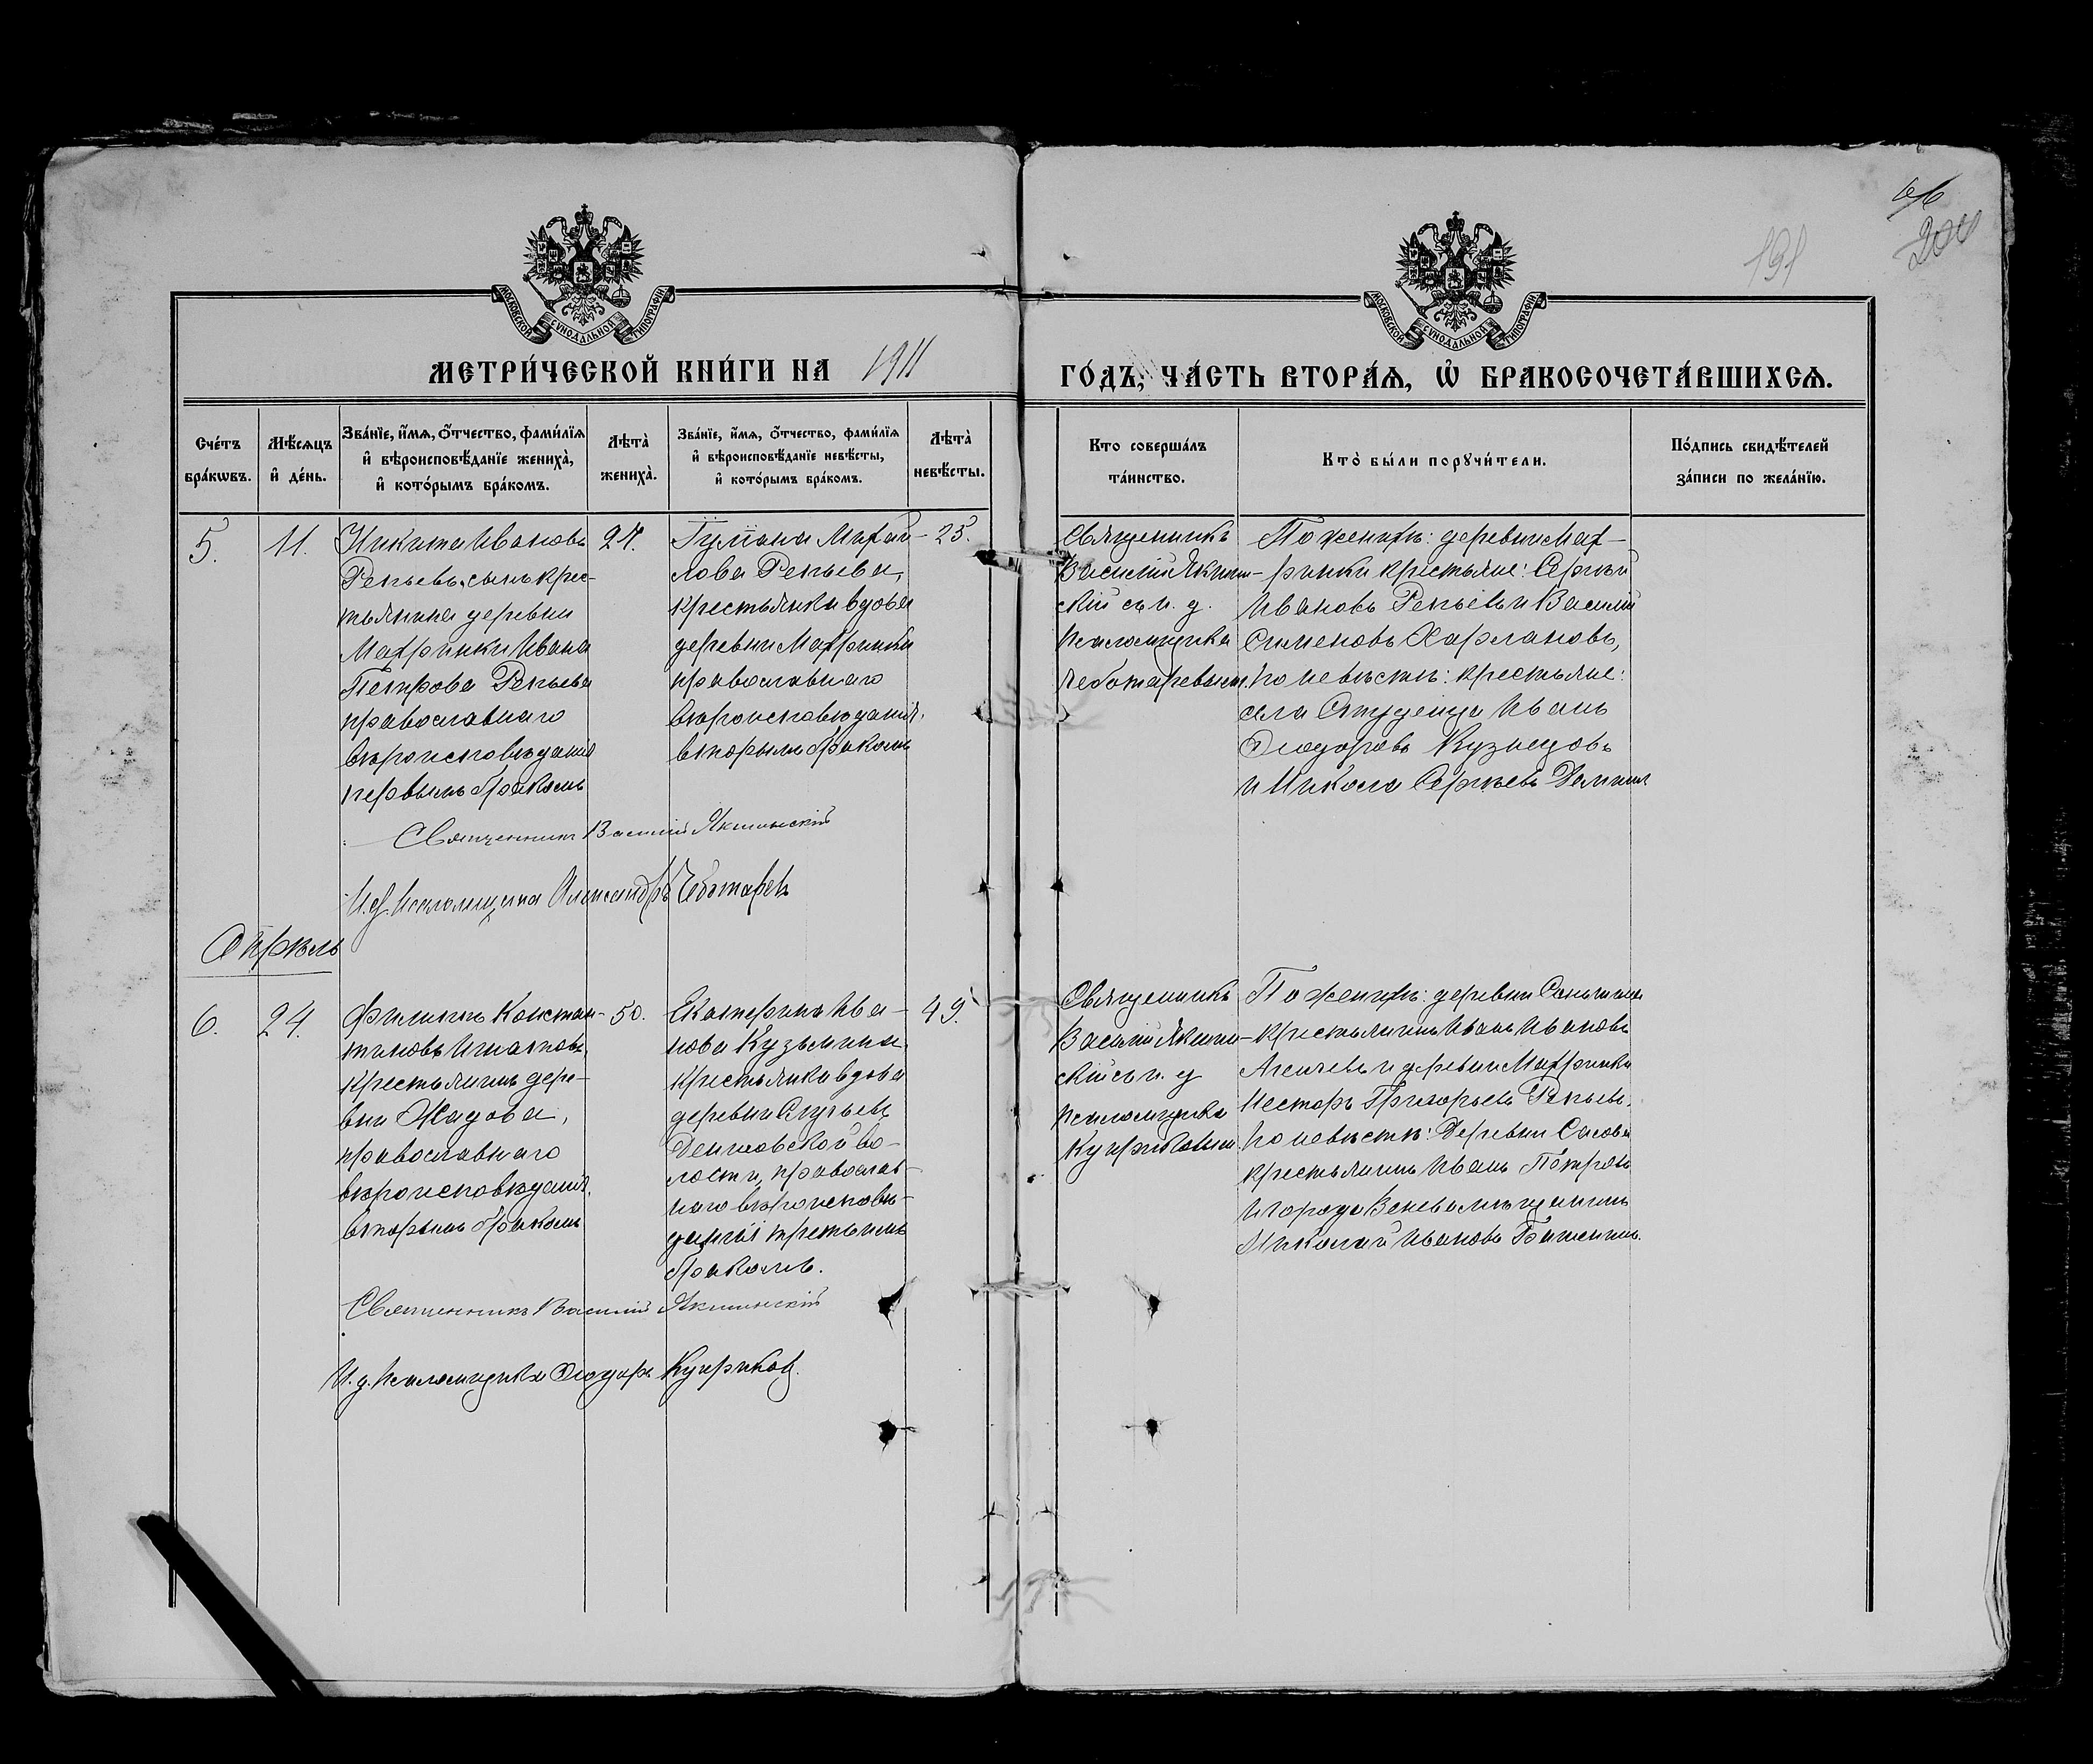 об
204
191
МОСКОВСКОЙ СѴНОДАЛЬНОЙ ТИПОГРАФІИ
МОСКОВСКОЙ СѴНОДАЛЬНОЙ ТИПОГРАФІИ
МЕТРИ́ЧЕСКОЙ КНИ́ГИ НА 1911
ГО́ДЪ, ЧА́СТЬ ВТОРА́Ѧ, Ѡ҆ БРАКОСОЧЕТА́ВШИХСѦ.
Сче́тъ
бра́кωвъ.
Мѣ́сѧцъ
и҆ де́нь.
Зва́нїе, и҆́мѧ, ѻ҆́тчество, фами́лїѧ
и҆ вѣроисповѣ́данїе жениха̀,
и҆ кото́рымъ бра́комъ.
Лѣта̀
жениха̀.
Зва́нїе, и҆́мѧ, ѻ҆́тчество, фами́лїѧ
и҆ вѣроисповѣ́данїе невѣ́сты,
и҆ кото́рымъ бра́комъ.
Лѣта̀
невѣ́сты.
Кто соверша́лъ
та́инство.
Кто̀ бы́ли порꙋчи́тели.
По́дпись свидѣ́телей
за́писи по жела́нїю.
5.
11.
Никита Ивановъ
Репьевъ, сынъ крес-
тьянина деревни
Махринки Ивана
Петрова Репьева
православнаго
вѣроисповѣданія
первымъ бракомъ
24.
Іуліана Михай-
лова Репьева,
крестьянка вдова
деревни Махринки
православнаго
вѣроисповѣданія,
вторымъ бракомъ
25.
Священникъ
Василій Якшин-
скій съ и. д.
псаломщика
Чеботаревымъ.
По женихѣ: деревни Мах-
ринки крестьяне: Сергѣй
Ивановъ Репьевъ и Василій
Симеоновъ Харлановъ,
по невѣстѣ: крестьяне:
села Студенца Иванъ
Ѳеодоровъ Кузнецовъ
и Никола Сергѣевъ
Священникъ Василій Якшинскій
И. д. псаломщика Александръ Чеботаревъ
Апрѣль
6.
24.
Филиппъ Констан-
тиновъ Игнатовъ,
крестьянинъ дере-
вни Жадова,
православнаго
вѣроисповѣданія,
вторымъ бракомъ
50.
Екатерина Ива-
нова Кузьмина,
крестьянка вдова
деревни
во-
лости, православ-
наго вѣроисповѣ-
данія третьимъ
бракомъ.
49.
Священникъ
Василій Якшин-
скій съ и. д.
псаломщика
Куприковымъ
По женихѣ: деревни
крестьянинъ Иванъ Ивановъ
и деревни Махринки
Несторъ Григорьевъ Репьевъ,
по невѣстѣ: деревни Сасова
крестьянинъ Иванъ Петровъ
и города Венева мѣщанинъ
Николай Ивановъ
Священникъ Василій Якшинскій
И. д. псаломщика Ѳеодоръ Куприковъ.